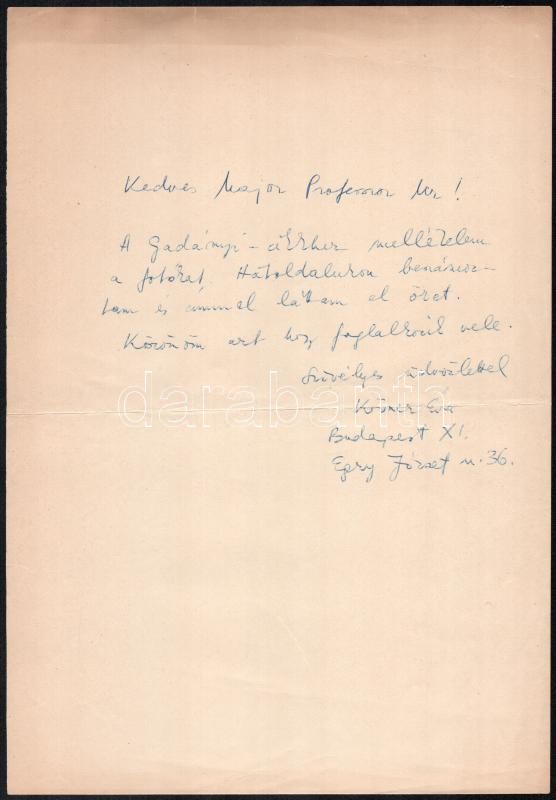 Kedves Major Professor Úr!
A Gadányi-cikkhez mellékelem
a fotókat. Hátoldalukon beszámoz-
tam és címmel láttam el őket.
Köszönöm azt hogy foglalkozik vele.
Szívélyes üdvözlettel
Körner Éva
Budapest XI.
Egry József u. 36.
darabanth